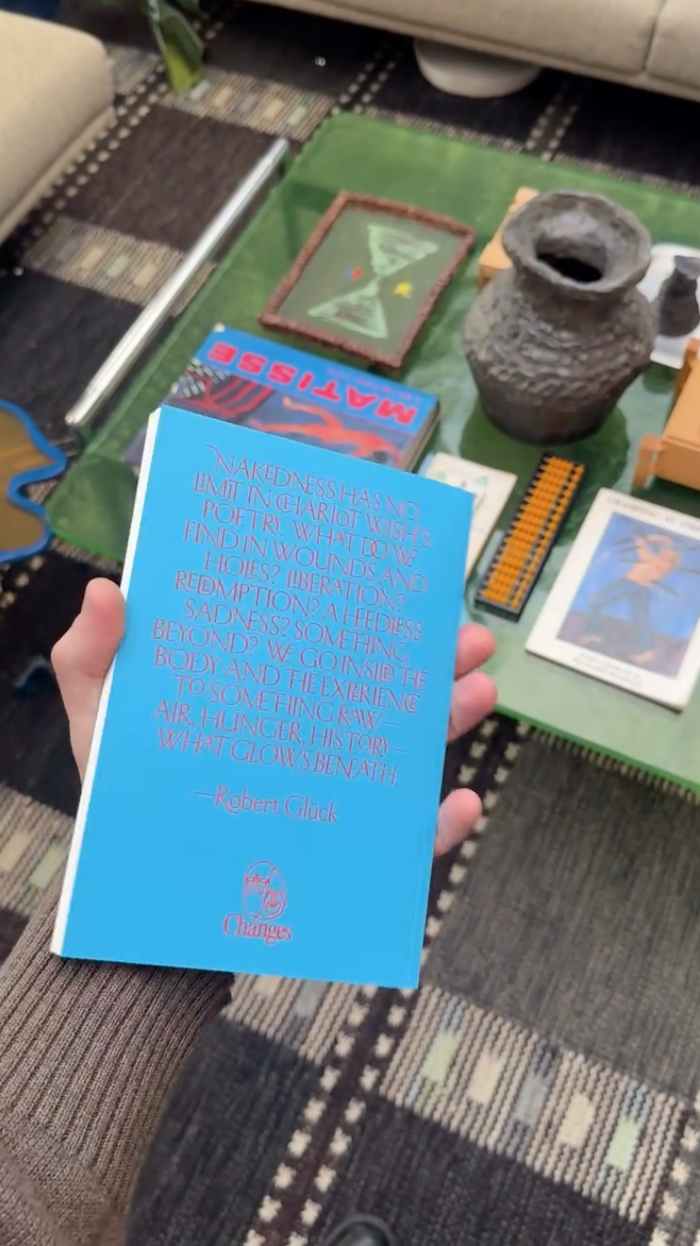 MATISSE
"NAKEDNESS HAS NO
LIMIT IN CHARIOT WISH'S
POETRY. WHAT DO WE
FIND IN WOUNDS AND
HOLES? LIBERATION?
REDEMPTION? A HEEDLESS
SADNESS? SOMETHING
BEYOND? WE GO INSIDE THE
BODY AND THE EXPERIENCE
TO SOMETHING RAW—
AIR, HUNGER, HISTORY—
WHAT GLOWS BENEATH.
—Robert Glück
Changes